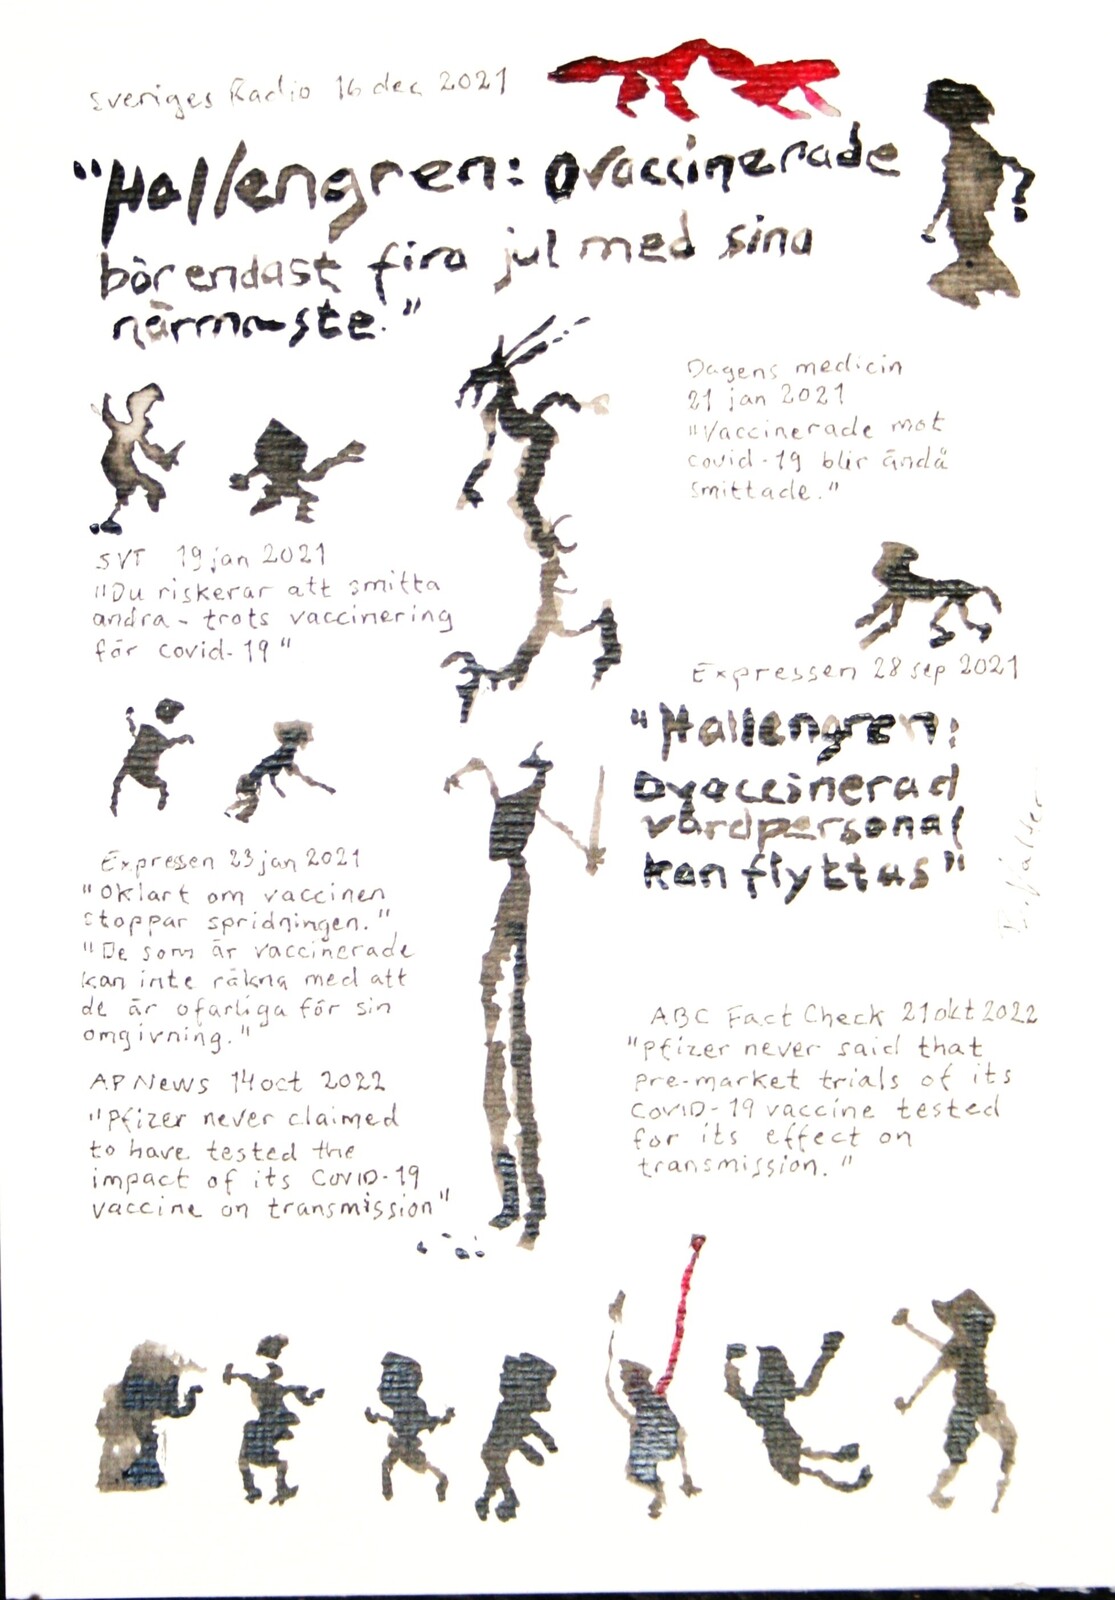 Sveriges Radio 16 dec 2021
"Hallengren: Ovaccinerade
bör endast fira jul med sina
närmaste."
Dagens medicin
21 jan 2021
"Vaccinerade mot
covid-19 blir ändå
smittade."
SVT 19 jan 2021
"Du riskerar att smitta
andra - trots vaccinering
för covid-19"
Expressen 28 sep 2021
"Hallengren:
Ovaccinerad
vårdpersonal
kan flyttas"
Expressen 23 jan 2021
"Oklart om vaccinen
stoppar spridningen."
"De som är vaccinerade
kan inte räkna med att
de är ofarliga för sin
omgivning."
AP News 14 oct 2022
"Pfizer never claimed
to have tested the
impact of its COVID-19
vaccine on transmission"
ABC Fact Check 21 okt 2022
"Pfizer never said that
pre-market trials of its
COVID-19 vaccine tested
for its effect on
transmission."